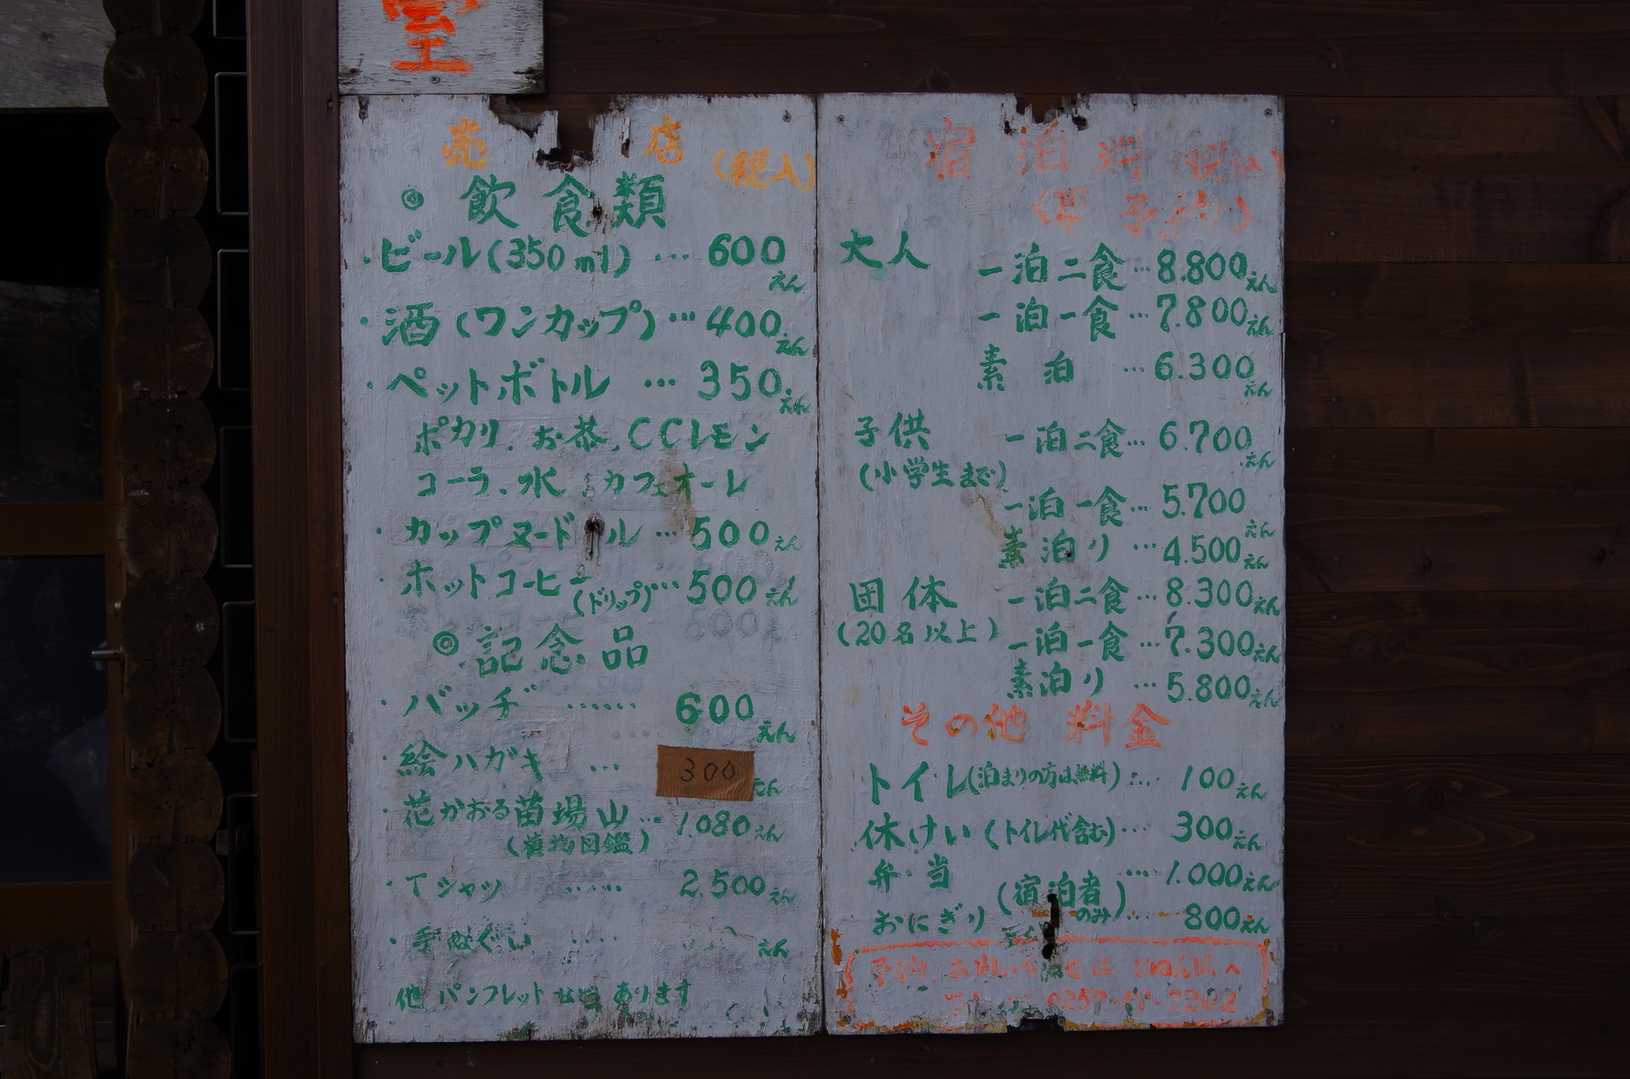 室
売店(税入)
◎飲食類
・ビール(350ml)…600えん
・酒(ワンカップ)…400えん
・ペットボトル…350えん
ポカリ.お茶.CCレモン
コーラ.水.カフェオーレ
・カップヌードル…500えん
・ホットコーヒー(ドリップ)…500えん
◎記念品
・バッチ……600えん
・絵ハガキ…300えん
・花かおる苗場山…1.080えん
(植物図鑑)
・Tシャツ……2.500えん
・手ぬぐい……えん
他パンフレット あります
宿泊料(税入)
大人 一泊二食…8.800えん
一泊一食…7.800えん
素泊…6.300えん
子供 一泊二食…6.700えん
(小学生まで)
一泊一食…5.700えん
素泊り…4.500えん
団体 一泊二食…8.300えん
(20名以上) 一泊一食…7.300えん
素泊り…5.800えん
その他料金
トイレ(泊まりの方は無料)…100えん
休けい(トイレ代含む)…300えん
弁当…1.000えん
(宿泊者のみ)
おにぎり…800えん